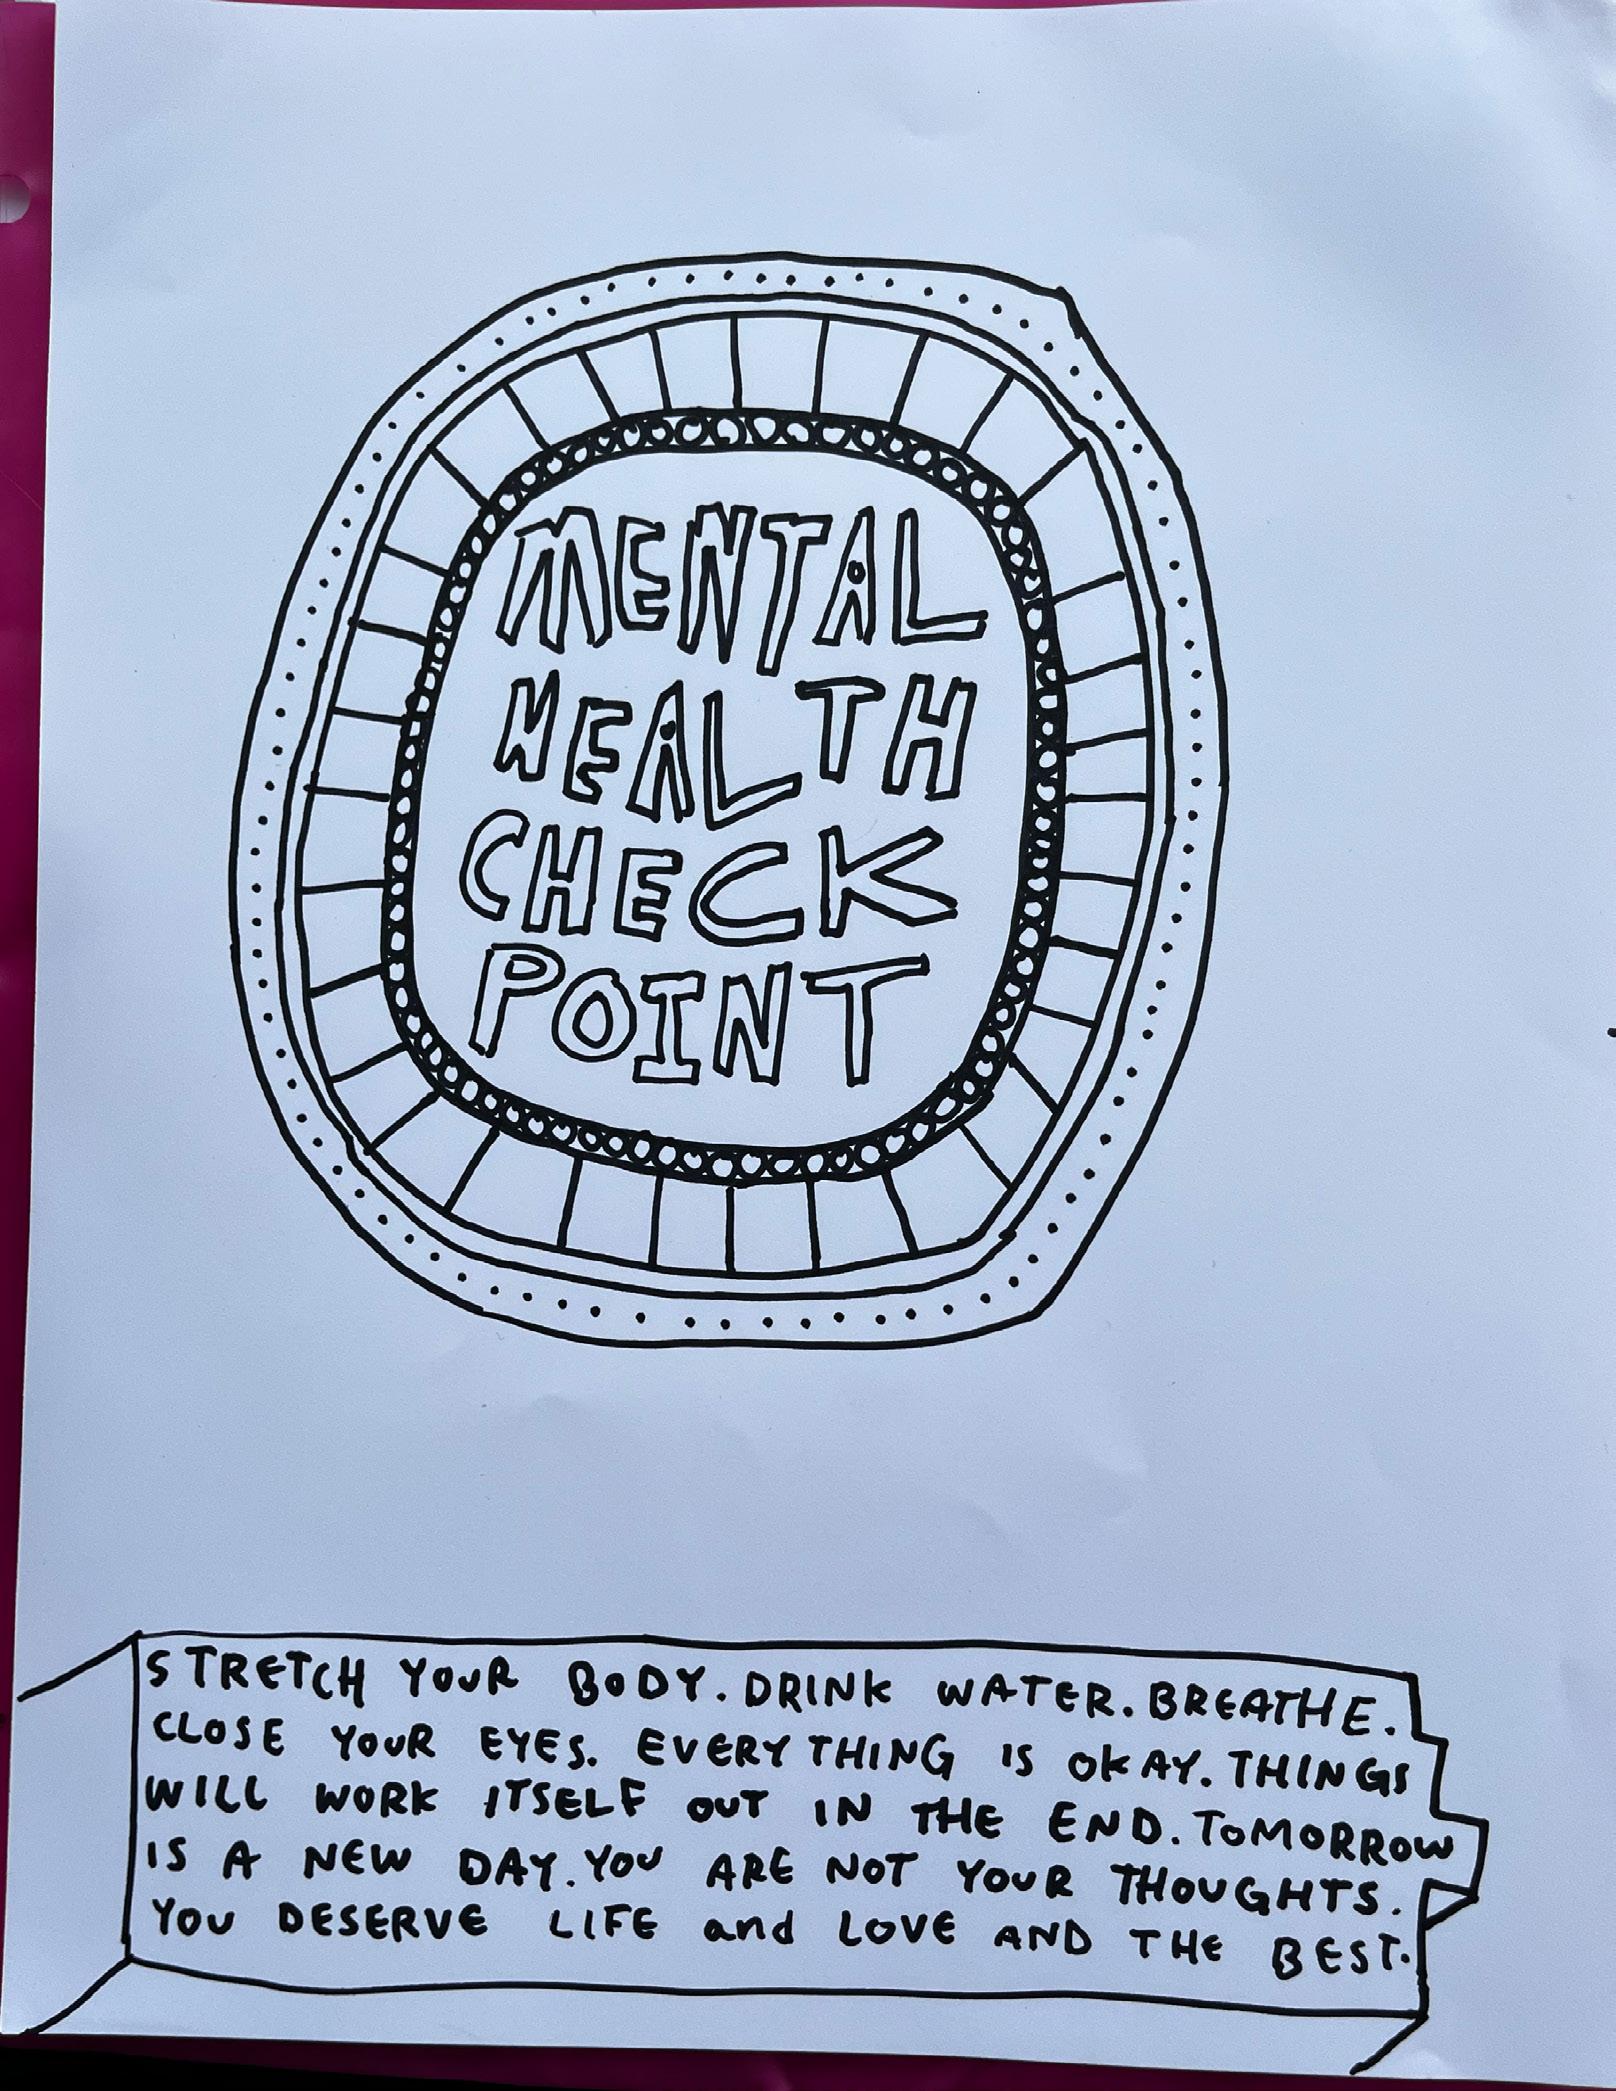 MENTAL
HEALTH
CHECK
POINT
STRETCH YOUR BODY. DRINK WATER. BREATHE.
CLOSE YOUR EYES. EVERYTHING IS OKAY. THINGS
WILL WORK ITSELF OUT IN THE END. TOMORROW
IS A NEW DAY. YOU ARE NOT YOUR THOUGHTS.
YOU DESERVE LIFE and LOVE AND THE BEST.